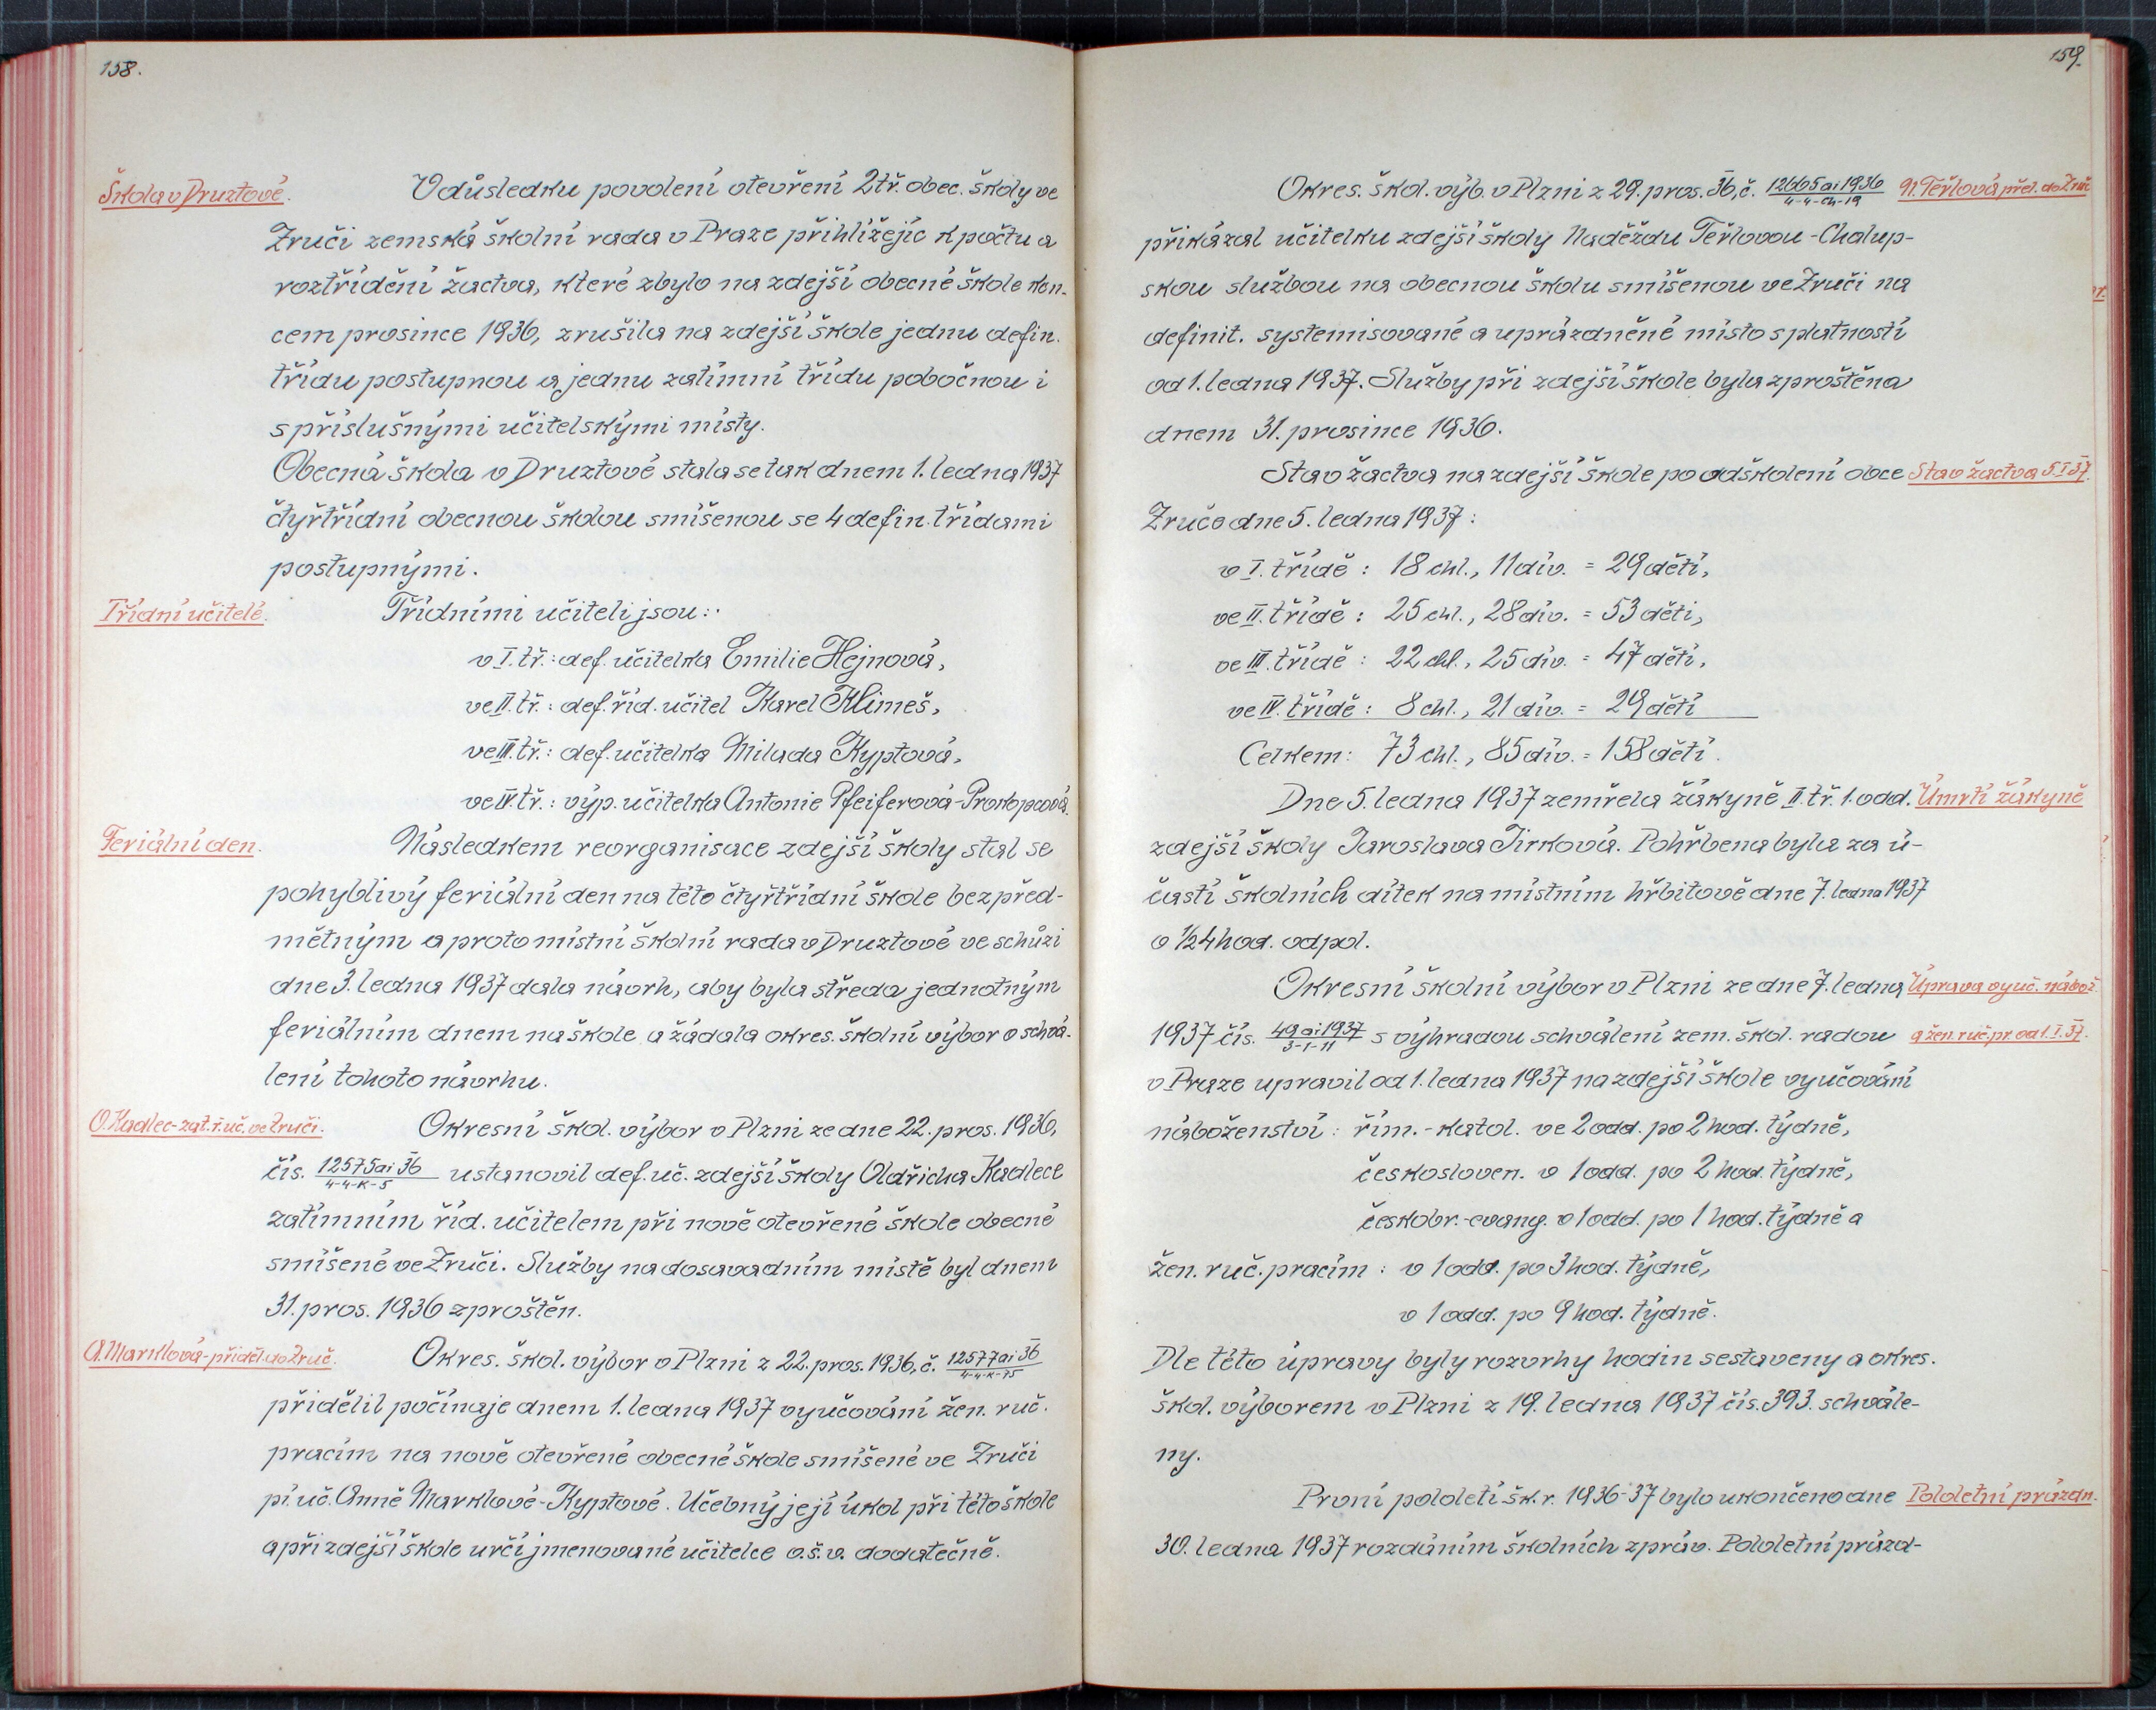 158.
Škola v Druztové.
V důsledku povolení otevření 2tř. obec. školy ve
Zruči zemská školní rada v Praze přihlížejíc k počtu a
roztřídění žactva, které zbylo na zdejší obecné škole kon-
cem prosince 1936, zrušila na zdejší škole jednu defin.
třídu postupnou a jednu zatímní třídu pobočnou i
s příslušnými učitelskými místy.
Obecná škola v Druztové stala se tak dnem 1. ledna 1937
čtyřtřídní obecnou školou smíšenou se 4 defin. třídami
postupnými.
Třídní učitelé.
Třídními učiteli jsou:
v I. tř.: def. učitelka Emilie Hejnová,
ve II. tř.: def. říd. učitel Karel Klimeš,
ve III. tř.: def. učitelka Milada Kyptová,
ve IV. tř.: výp. učitelka Antonie Pfeiferová-Prokopcová.
Feriální den.
Následkem reorganisace zdejší školy stal se
pohyblivý feriální den na této čtyřtřídní škole bezpřed-
mětným a proto místní školní rada v Druztové ve schůzi
dne 3. ledna 1937 dala návrh, aby byla středa jednotným
feriálním dnem na škole a žádala okres. školní výbor o schvá-
lení tohoto návrhu.
O. Kadlec-zat. ř. uč. ve Zruči.
Okresní škol. výbor v Plzni ze dne 22. pros. 1936,
čís. 12575 ai 36 / 4-4-K-5 ustanovil def. uč. zdejší školy Oldřicha Kadlece
zatímním říd. učitelem při nově otevřené škole obecné
smíšené ve Zruči. Služby na dosavadním místě byl dnem
31. pros. 1936 zproštěn.
A. Marklová-přiděl. do Zruč.
Okres. škol. výbor v Plzni z 22. pros. 1936, č. 12577 ai 36 / 4-4-K-75
přidělil počínaje dnem 1. ledna 1937 vyučování žen. ruč.
pracím na nově otevřené obecné škole smíšené ve Zruči
pí. uč. Anně Marklové-Kyptové. Učebný její úkol při této škole
a při zdejší škole určí jmenované učitelce o.š.v. dodatečně.
159.
Okres. škol. výb. v Plzni z 29. pros. 36, č. 12665 ai 1936 / 4-4-Ch-19
N. Teřlová přel. do Zruč
přikázal učitelku zdejší školy Naděždu Teřlovou-Chalup-
skou službou na obecnou školu smíšenou ve Zruči na
definit. systemisované a uprázdněné místo s platností
od 1. ledna 1937. Služby při zdejší škole byla zproštěna
dnem 31. prosince 1936.
Stav žactva na zdejší škole po odškolení obce
Stav žactva 5. I. 37.
Zruče dne 5. ledna 1937:
v I. třídě: 18 chl., 11 dív. = 29 dětí,
ve II. třídě: 25 chl., 28 dív. = 53 děti,
ve III. třídě: 22 chl., 25 dív. = 47 dětí,
ve IV. třídě: 8 chl., 21 dív. = 29 dětí
Celkem: 73 chl., 85 dív. = 158 dětí.
Dne 5. ledna 1937 zemřela žákyně II. tř. 1. odd.
Úmrtí žákyně
zdejší školy Jaroslava Jirková. Pohřbena byla za ú-
častí školních dítek na místním hřbitově dne 7. ledna 1937
o 1/2 4 hod. odpol.
Okresní školní výbor v Plzni ze dne 7. ledna
Úprava vyuč. nábož.
1937 čís. 49 ai 1937 / 3-1-11 s výhradou schválení zem. škol. radou
a žen. ruč. pr. od 1. I. 37.
v Praze upravil od 1. ledna 1937 na zdejší škole vyučování
náboženství: řím.-katol. ve 2 odd. po 2 hod. týdně,
českosloven. v 1 odd. po 2 hod. týdně,
českobr.-evang. v 1 odd. po 1 hod. týdně a
žen. ruč. pracím: v 1 odd. po 3 hod. týdně,
v 1 odd. po 9 hod. týdně.
Dle této úpravy byly rozvrhy hodin sestaveny a okres.
škol. výborem v Plzni z 19. ledna 1937 čís. 393. schvále-
ny.
První pololetí šk. r. 1936-37 bylo ukončeno dne
Pololetní prázdn.
30. ledna 1937 rozdáním školních zpráv. Pololetní prázd-